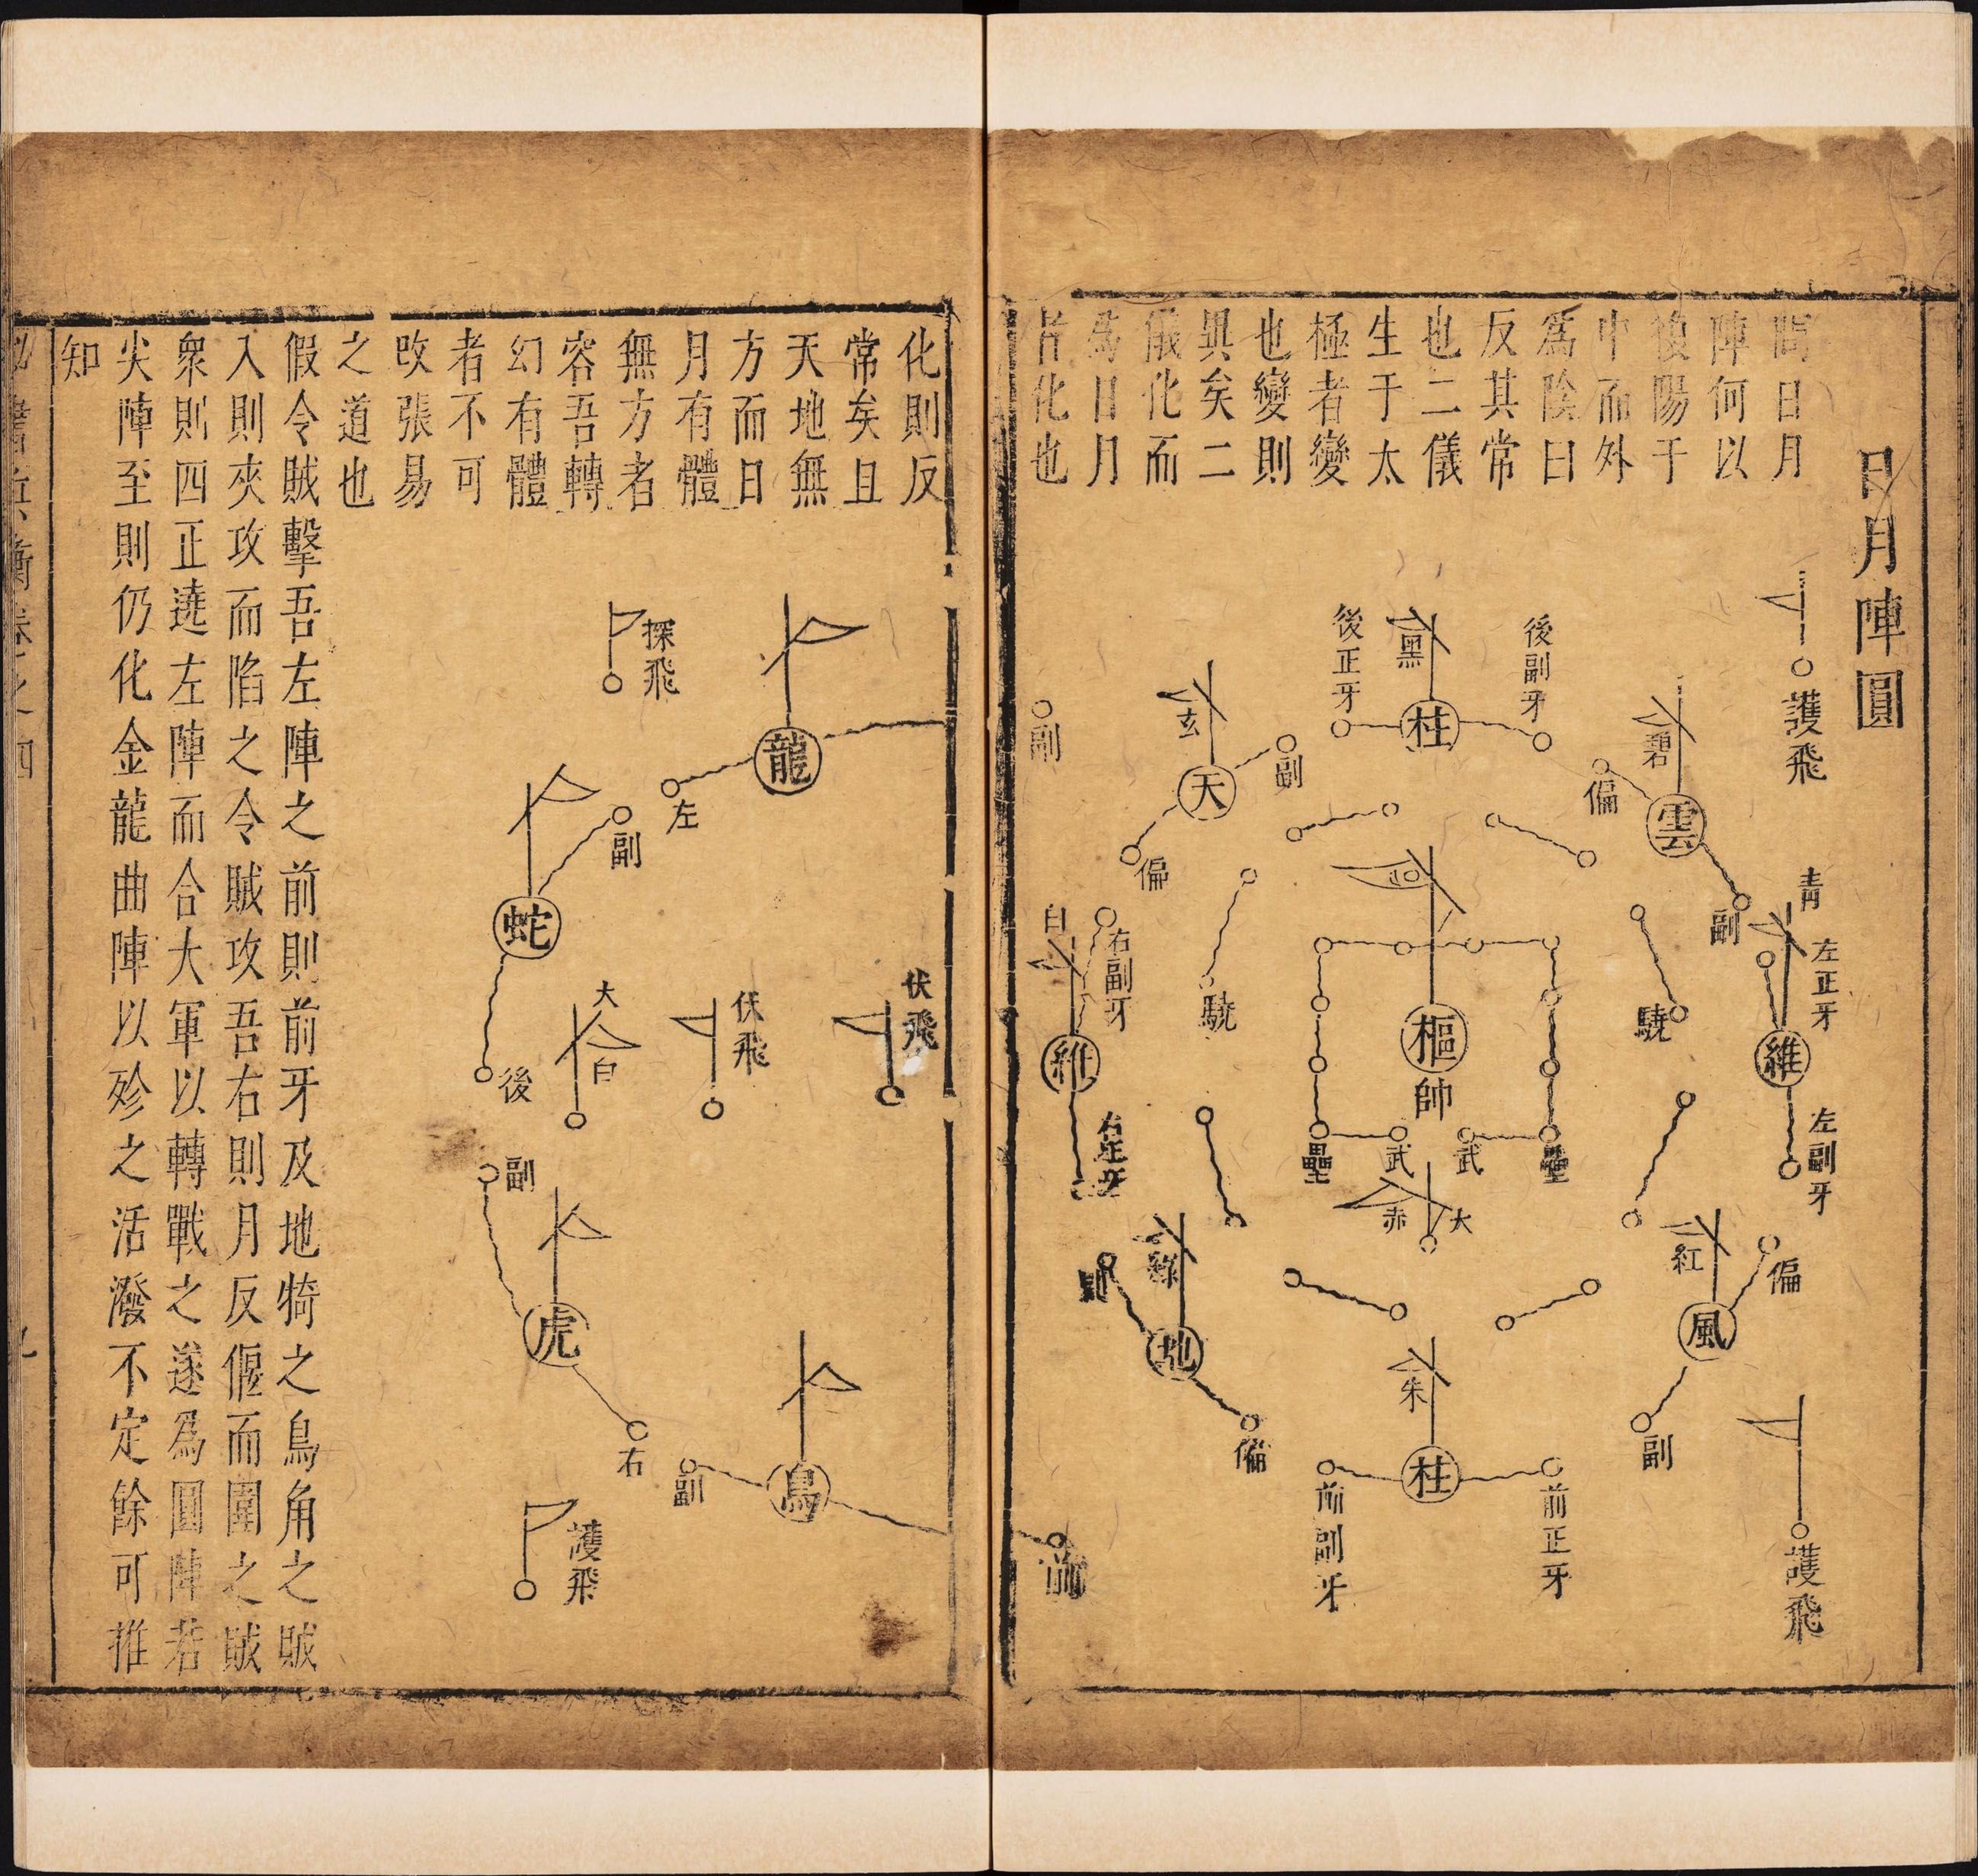 日月陣圓
問日月
陣何以
復陽于
中而外
爲陰曰
反其常
也二儀
生于太
極者變
也變則
異矣二
儀化而
爲日月
者化也
護飛
碧
雲
偏
副
青
左正牙
維
左副牙
後副牙
黑
柱
後正牙
玄
天
副
偏
副
白
右副牙
維
右正牙
驍
驍
樞
帥
壘
武
武
壘
大
赤
紅
風
偏
副
綠
地
副
偏
朱
柱
前正牙
前副牙
前
護飛
化則反
常矣且
天地無
方而日
月有體
無方者
容吾轉
幻有體
者不可
改張易
之道也
龍
左
探飛
蛇
副
後
伏飛
伏飛
大
白
副
虎
右
鳥
副
護飛
假令賊擊吾左陣之前則前牙及地犄之鳥角之賊
入則夾攻而陷之令賊攻吾右則月反偃而圍之賊
衆則四正遶左陣而合大軍以轉戰之遂爲圓陣若
尖陣至則仍化金龍曲陣以殄之活潑不定餘可推
知